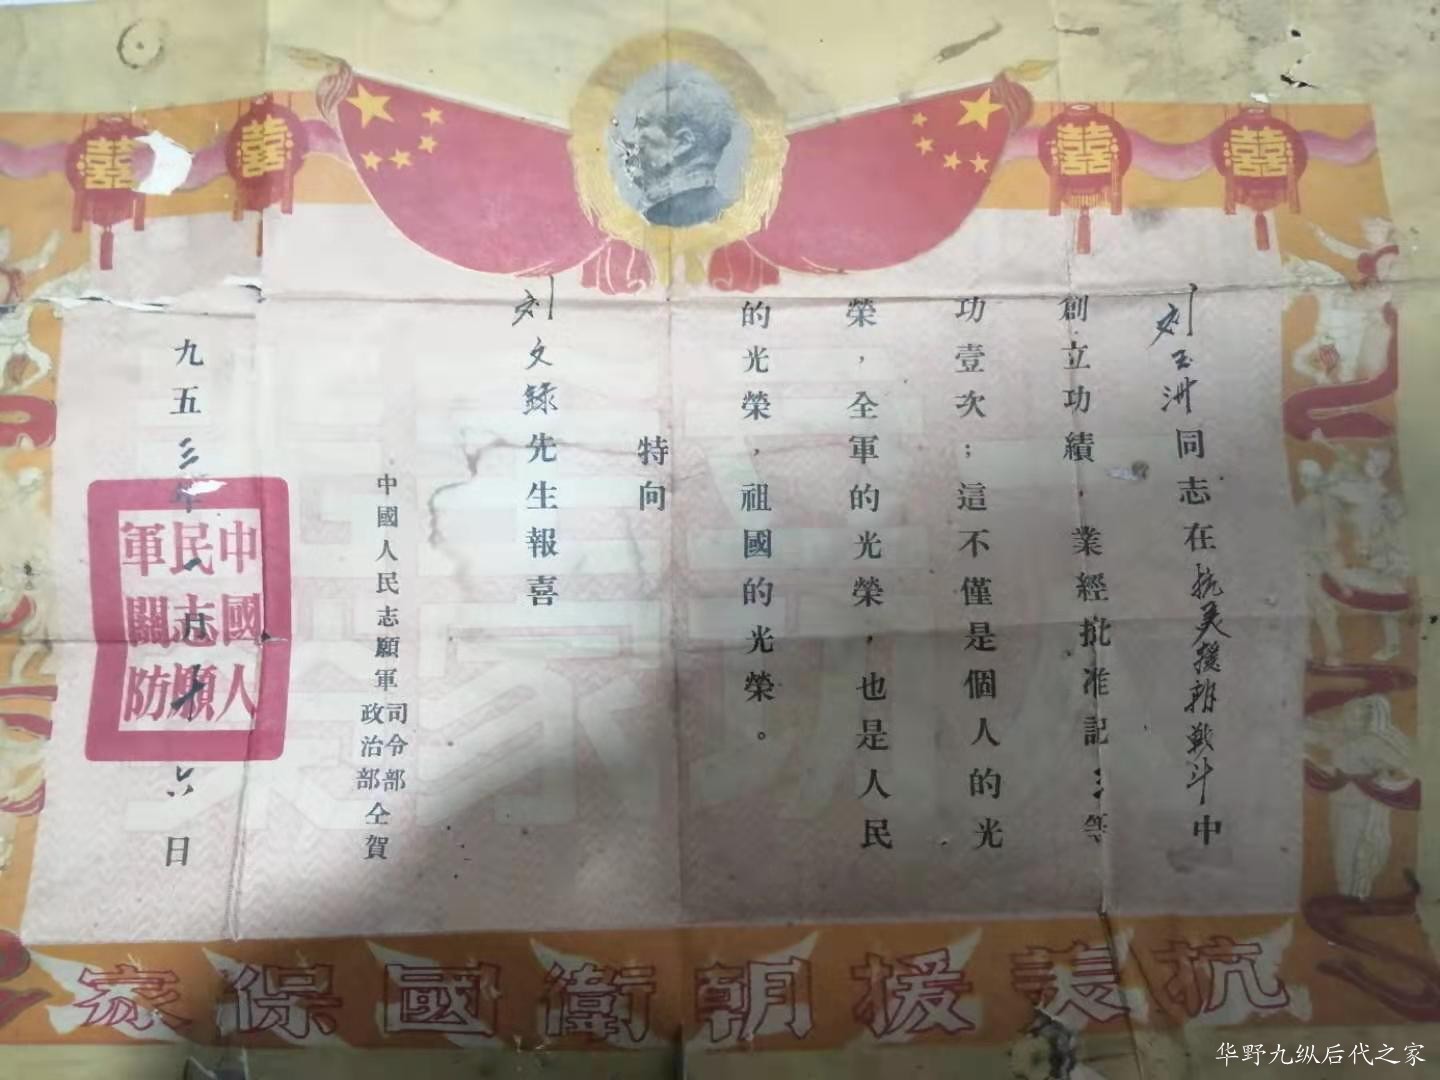 刘玉洲同志在抗美援朝战斗中
創立功績，業經批准記三等
功壹次；這不僅是個人的光
榮，全軍的光榮，也是人民
的光榮，祖國的光榮。
特向
刘文録先生報喜
中國人民志願軍
司令部
政治部
仝賀
九五三年一月十六日
中國人
民志願
軍關防
抗美援朝衛國保家
華野九纵后代之家